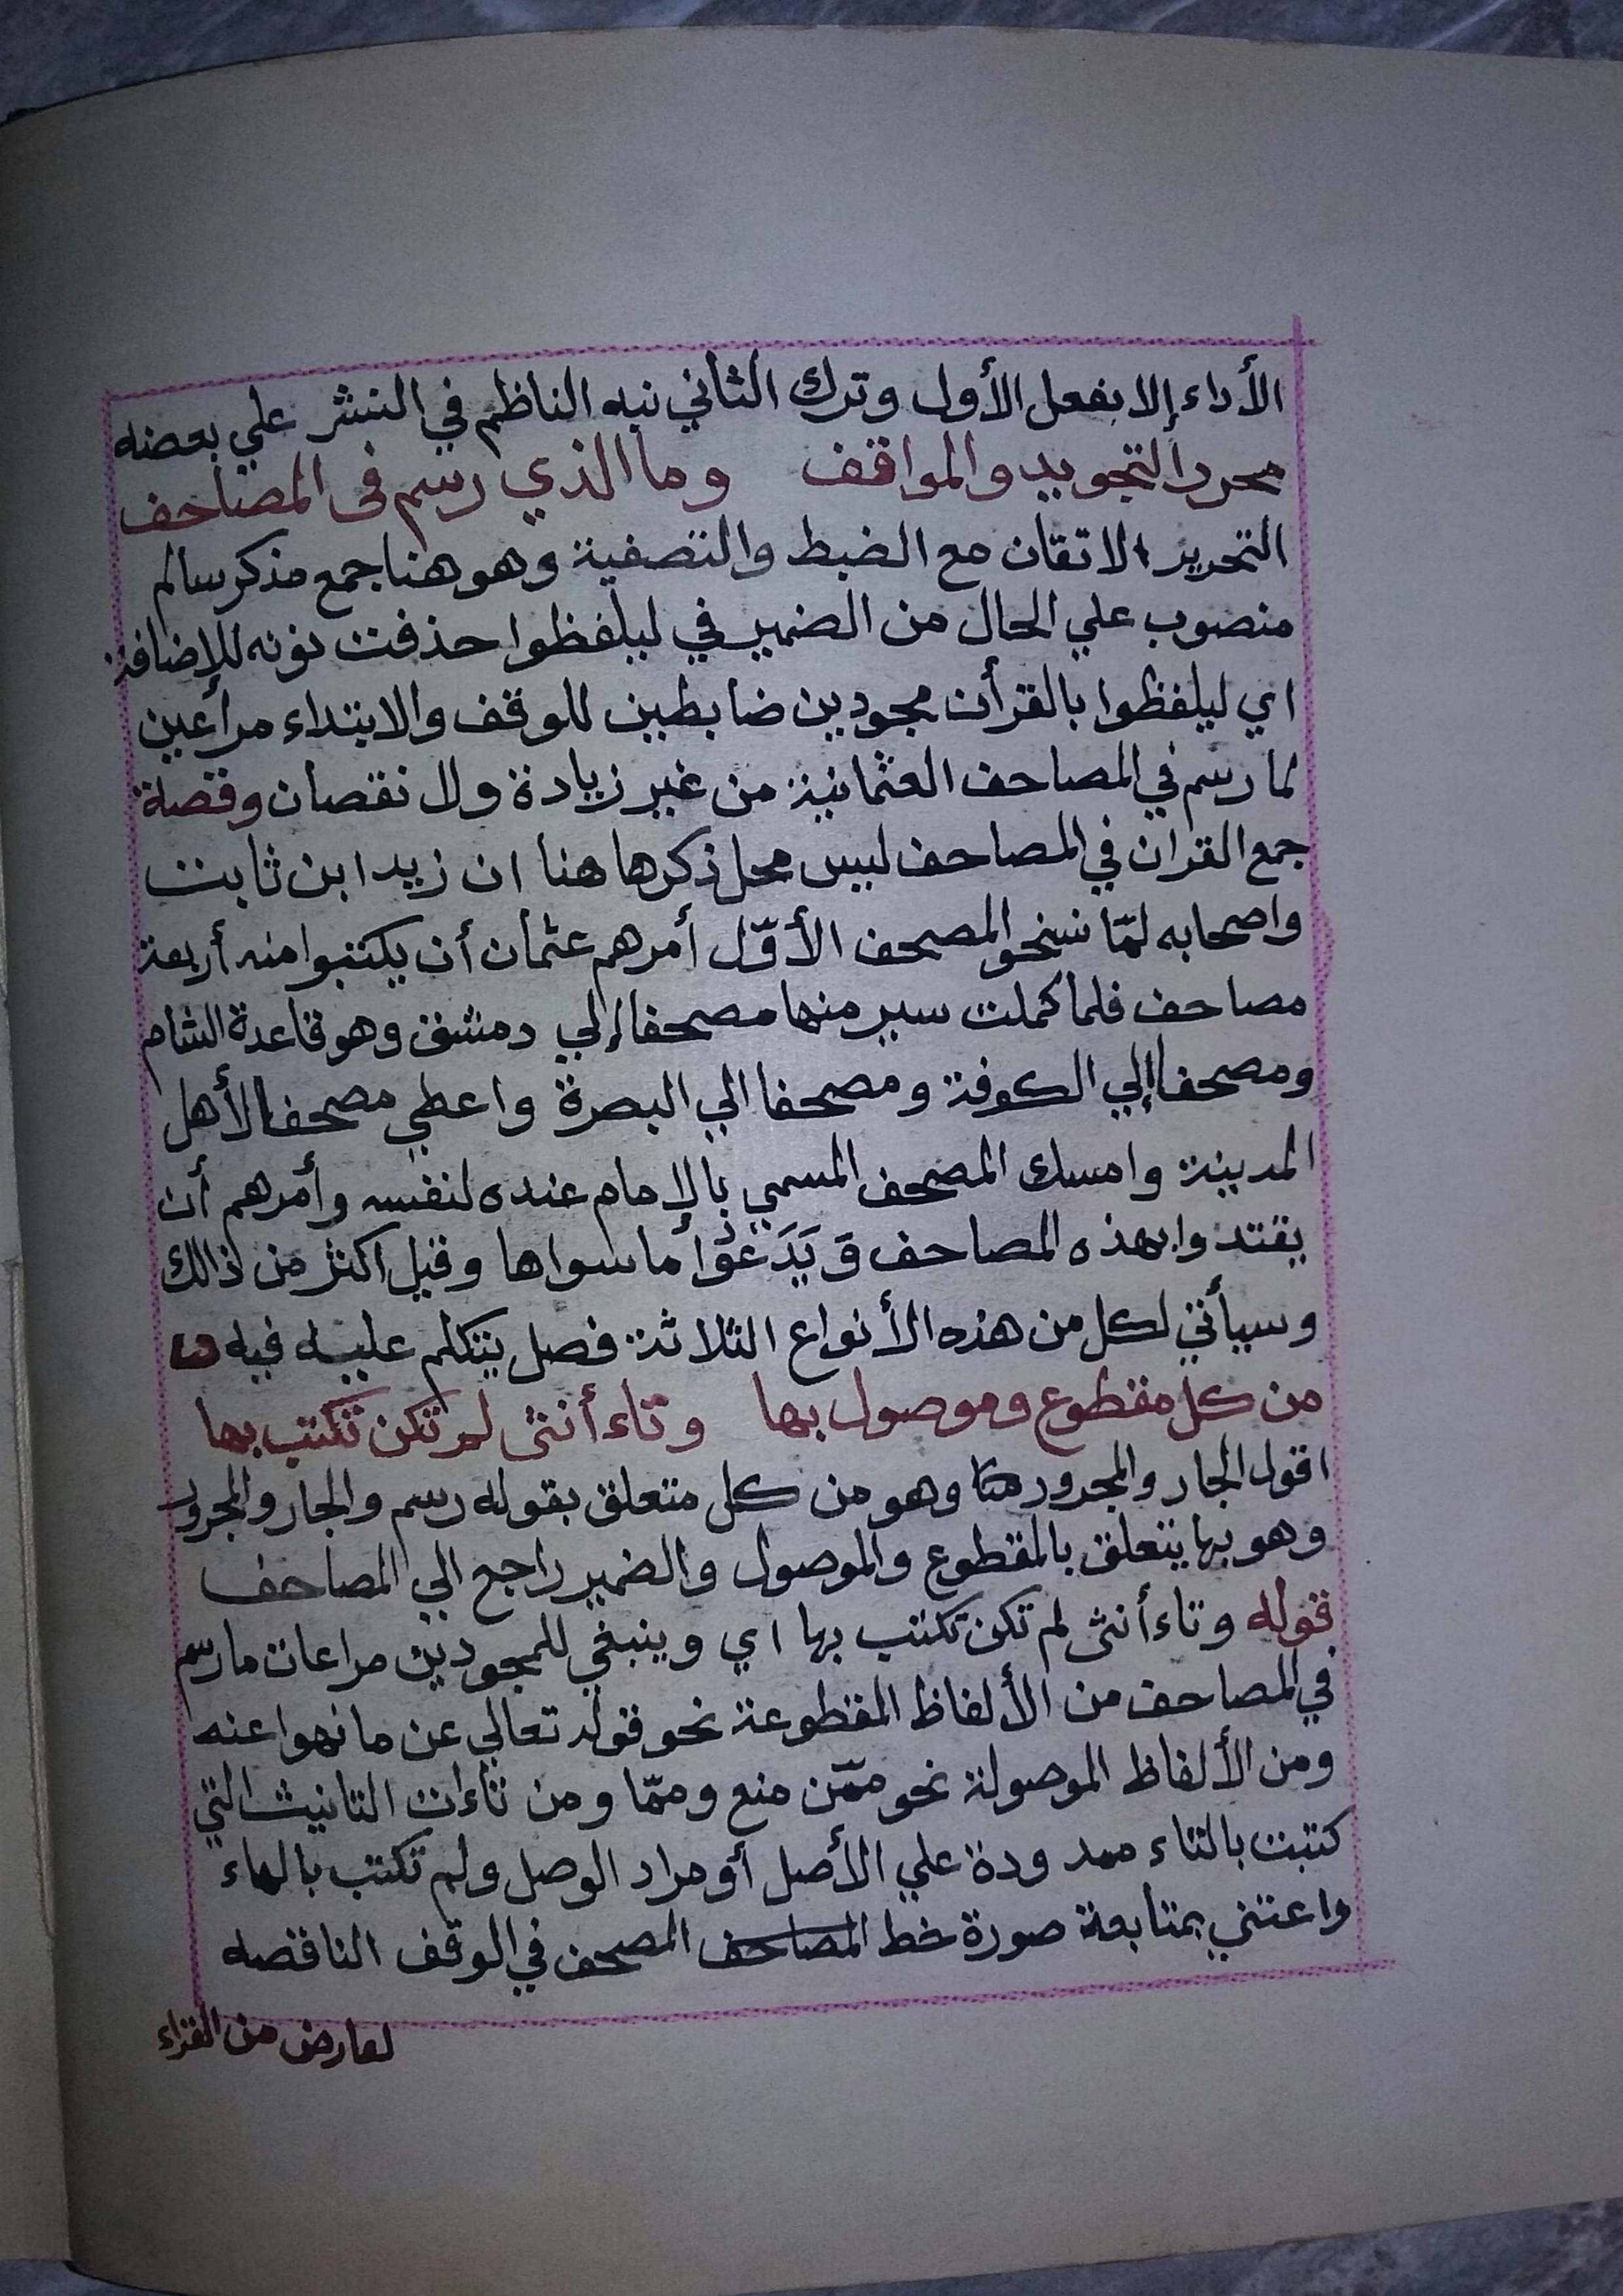 الأداء إلا بفعل الأول وترك الثاني نبه الناظم في النشر علي بعضه
محررا التجويد والمواقف وما الذي رسم في المصاحف
التحرير الاتقان مع الضبط والتصفية وهو هنا جمع مذكر سالم
منصوب علي الحال من الضمير في ليلفظوا حذفت نونه للإضافة
اي ليلفظوا بالقرأن مجودين ضابطين للوقف والابتداء مراعين
لما رسم في المصاحف العثمانية من غير زيادة ولا نقصان وقصة
جمع القران في المصاحف ليس محل ذكرها هنا ان زيد ابن ثابت
واصحابه لمّا نسخو المصحف الأوّل أمرهم عثمان أن يكتبوا منه أربعة
مصاحف فلما كملت سير منها مصحفا إلي دمشق وهو قاعدة الشام
ومصحفا إلي الكوفة ومصحفا الي البصرة واعطي مصحفا لأهل
المدينة وامسك المصحف المسمي بالإمام عنده لنفسه وأمرهم أن
يقتدوا بهذه المصاحف وَيَدَعُوْا ما سواها وقيل اكثر من ذالك
وسيأتي لكل من هذه الأنواع الثلاثة فصل يتكلم عليه فيه
من كل مقطوع وموصول بها وتاء أنثى لم تكن تكتب بها
اقول الجار والمجرور وهو من كل متعلق بقوله رسم والجار والمجرور
وهو بها يتعلق بالمقطوع والموصول والضمير راجع الي المصاحف
قوله وتاء أنثى لم تكن تكتب بها اي وينبغي للمجودين مراعات ما رسم
في المصاحف من الألفاظ المقطوعة نحو قوله تعالي عن ما نهوا عنه
ومن الألفاظ الموصولة نحو ممّن منع وممّا ومن تاءات التانيث التي
كتبت بالتاء ممدودة علي الأصل أو مراد الوصل ولم تكتب بالهاء
واعتني بمتابعة صورة خط المصاحف المصحف في الوقف الناقصه
لعارض من القراء